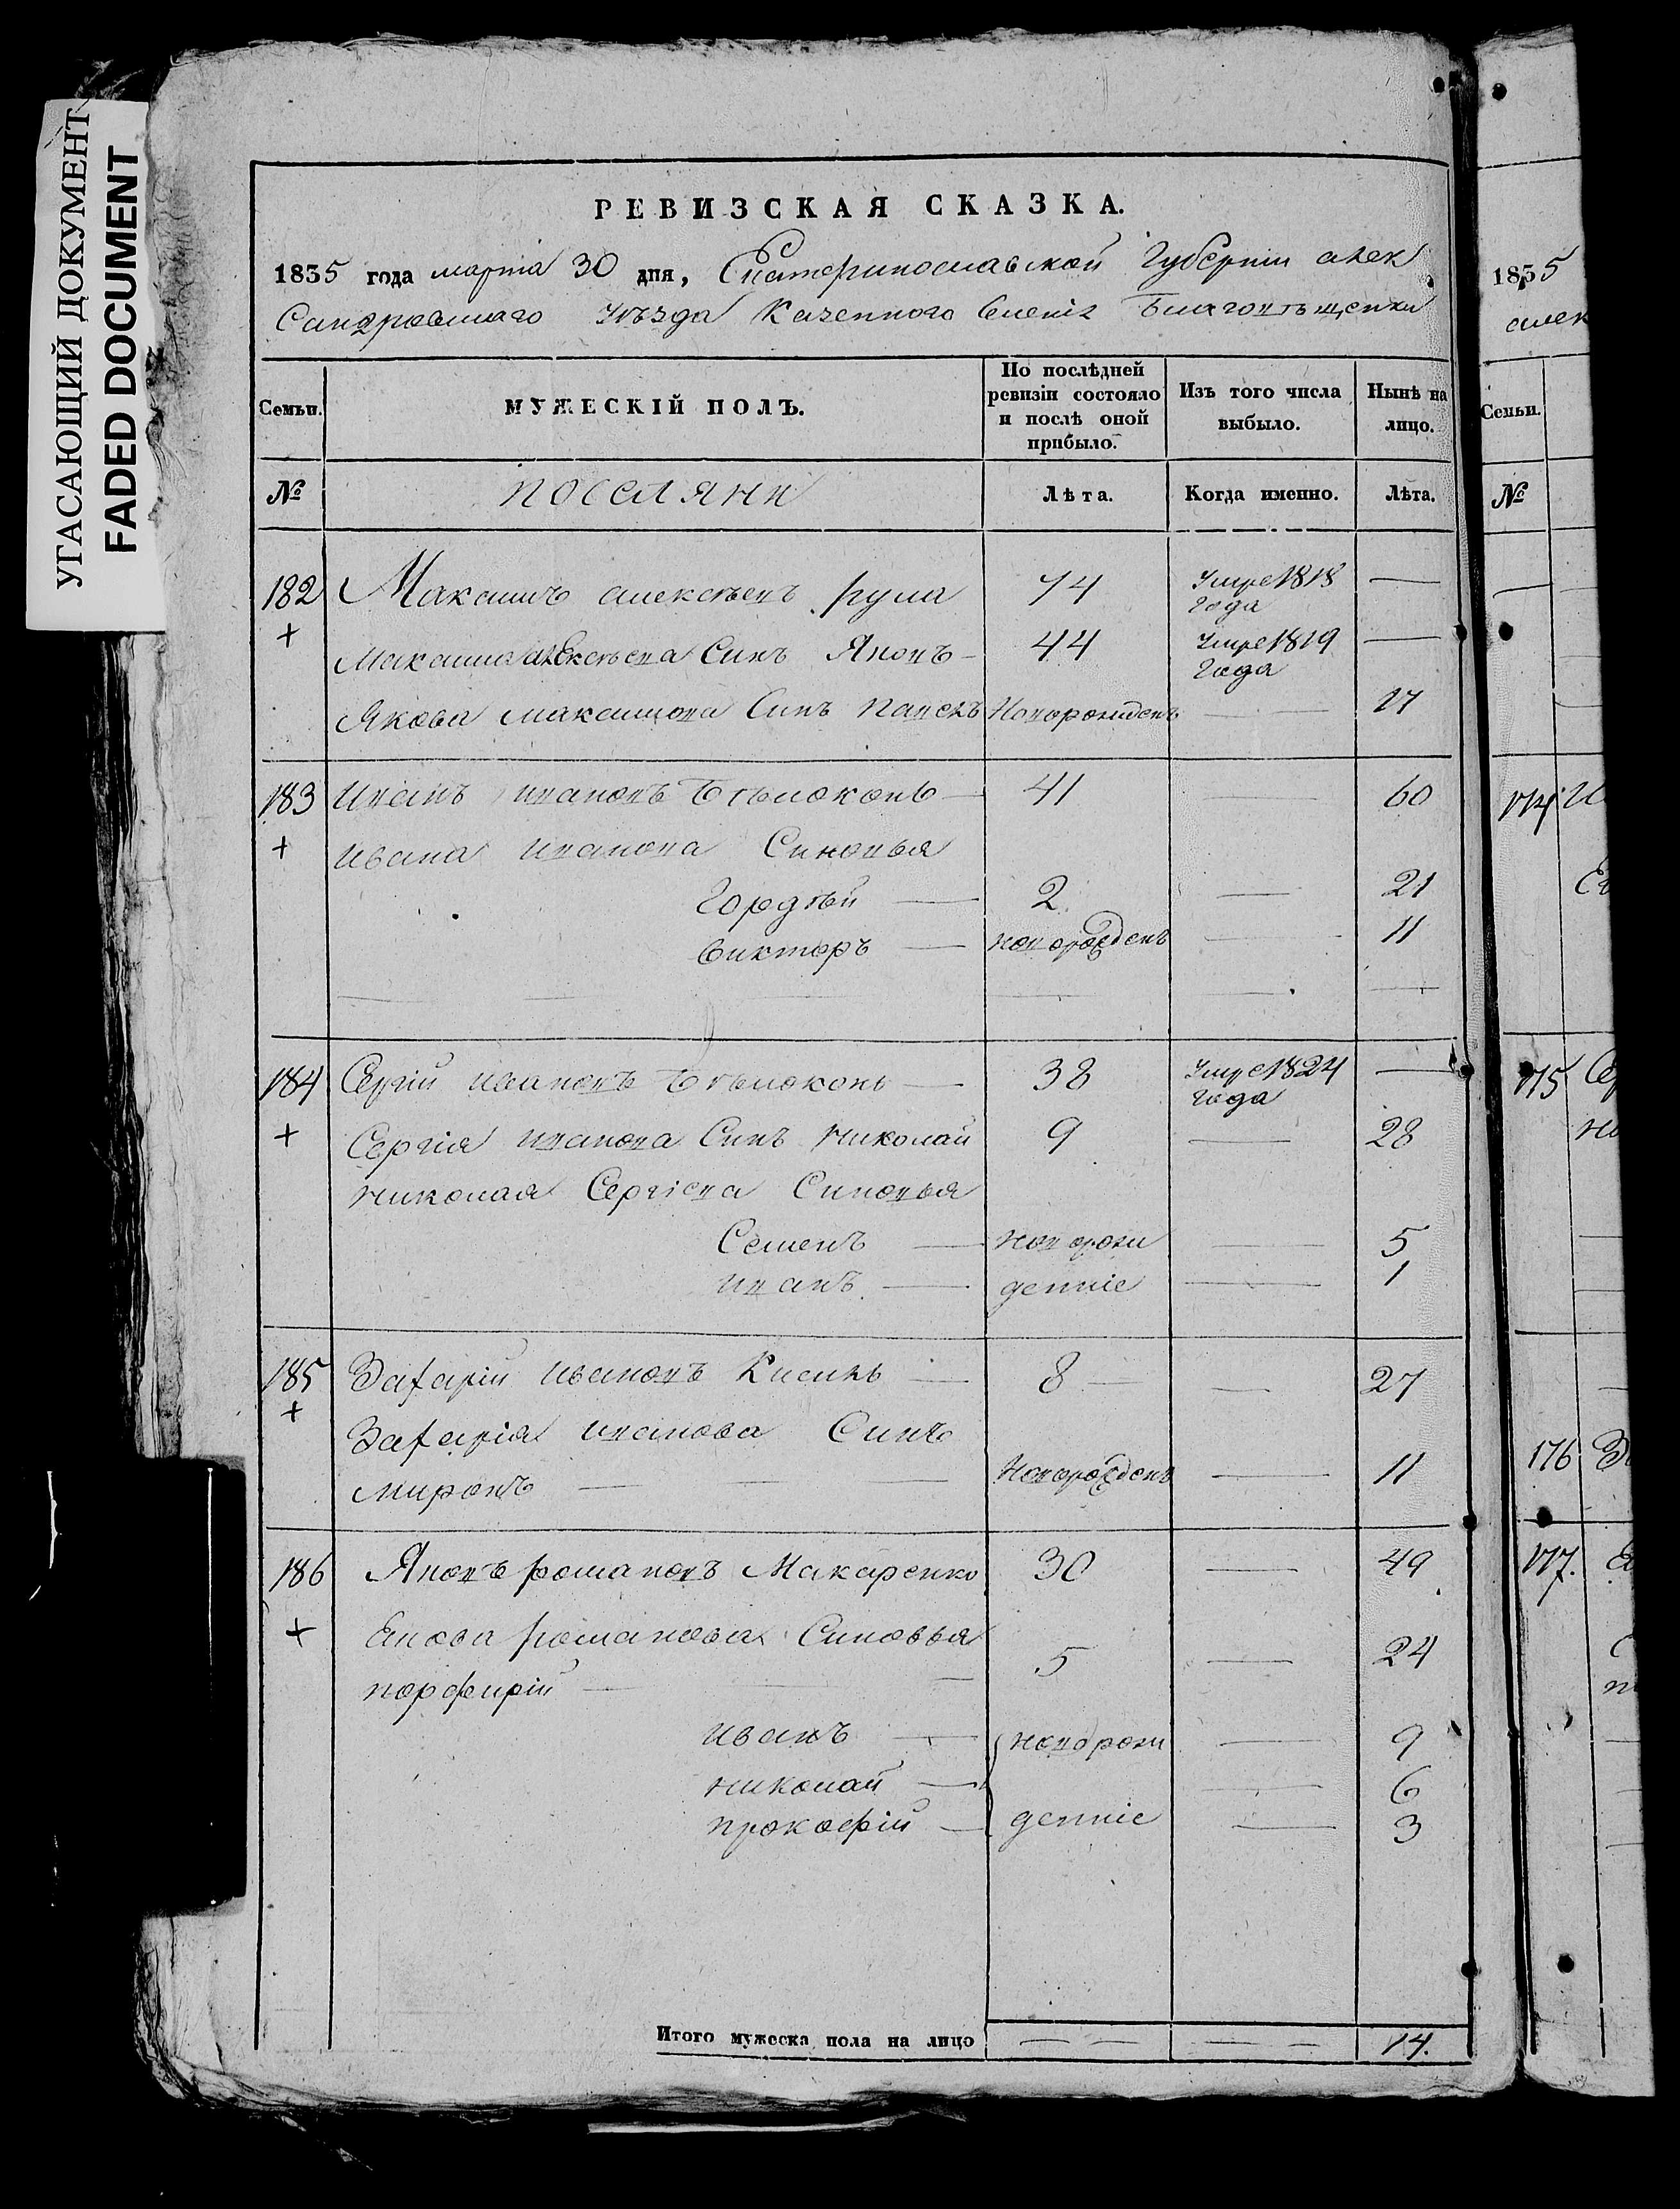 УГАСАЮЩИЙ ДОКУМЕНТ
FADED DOCUMENT
РЕВИЗСКАЯ СКАЗКА.
1835 года марта 30 дня, Екатеринославской Губернии алек
Сандровскаго Уѣзда Казенного Селенія Благовѣщенки
Семьи.
МУЖЕСКІЙ ПОЛЪ.
По послѣдней ревизіи состояло и послѣ оной прибыло.
Изъ того числа выбыло.
Нынѣ на лицо.
№ поселяни Лѣта. Когда именно. Лѣта.
182 Максимъ алексѣевъ рула 74 Умре 1818 Года —
Максима алексѣева Синъ Яковъ — 44 Умре 1819 Года —
Якова максимова Синъ павелъ Новорожденъ — 17
183 иванъ ивановъ Бѣлоконь — 41 — 60
ивана иванова Синовья
Гордѣй — 2 — 21
Викторъ — новорожденъ — 11
184 Сергій ивановъ Бѣлоконь — 38 Умре 1824 Года —
Сергія иванова Синъ николай 9 — 28
николая Сергіева Синовья
Семенъ — новорож — 5
иванъ — денніе — 1
185 Захарій ивановъ Кисинь — 8 — 27
Захарія иванова Синъ
миронъ — Новорожденъ — 11
186 Яковъ романовъ Макаренко 30 — 49
Якова романова Синовья
порфирій — 5 — 24
иванъ — новорож — 9
николай — 6
прокофій — денніе — 3
Итого мужеска пола на лицо — — 14.
1835
алек
Семьи.
№
174 И
175 Сер
ни
176
177.